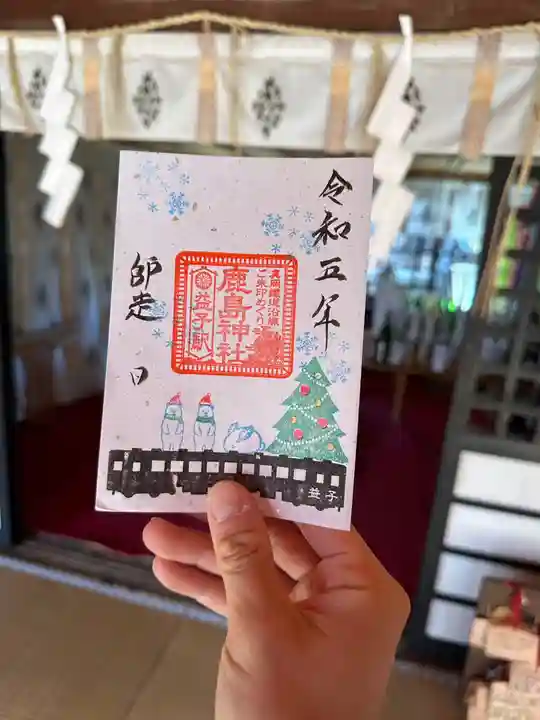 令和五年
真岡鐵道沿線
ご朱印めぐり
鹿島神社
益子駅
師走 日
益子